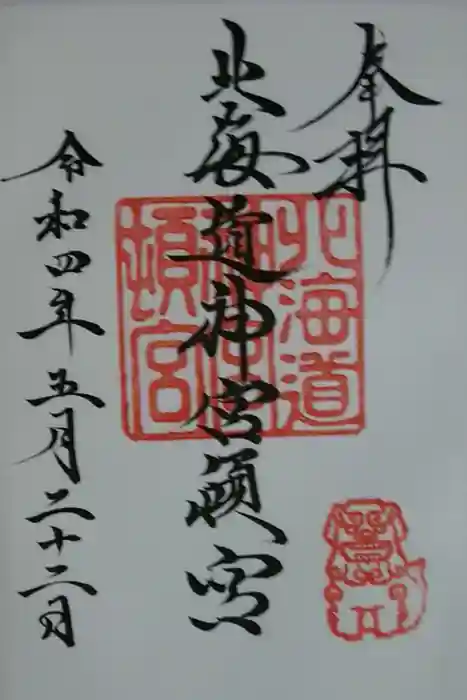 奉拝
北海道神宮頓宮
令和四年五月二十二日
北海道
神宮
頓宮